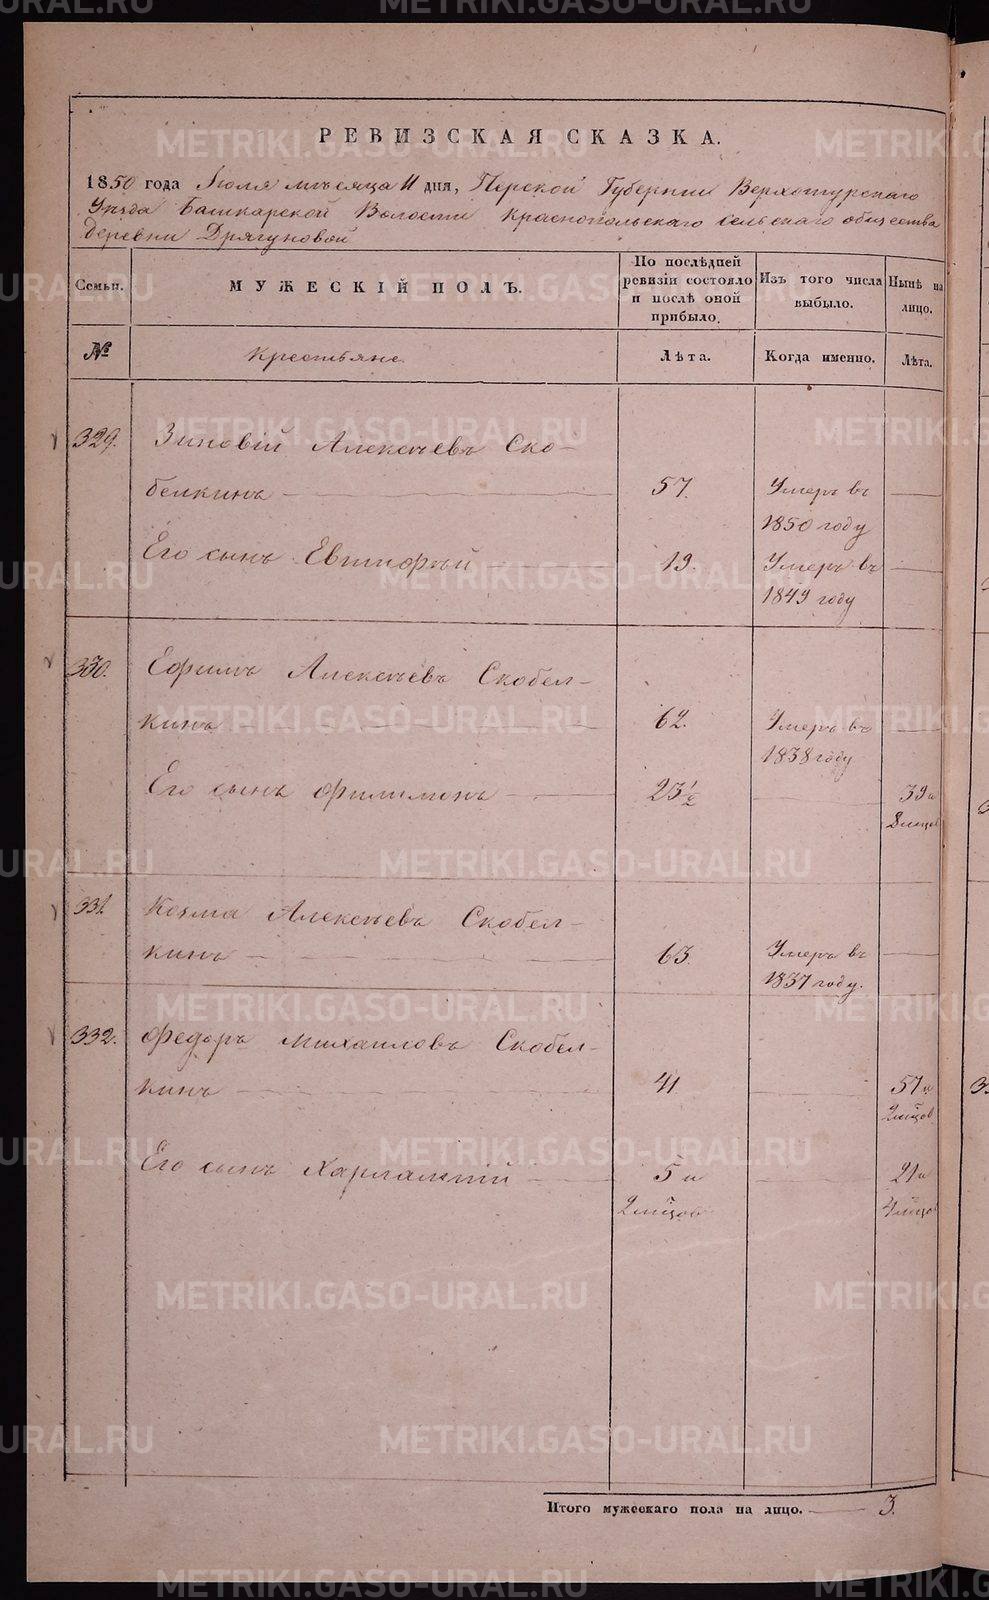 РЕВИЗСКАЯ СКАЗКА.
1850 года Іюля мѣсяца 11 дня, Пермской Губерніи Верхотурскаго
Уѣзда Башкарской Волости Краснопольскаго сельскаго общества
деревни Дрягуновой
Семьи. МУЖЕСКІЙ ПОЛЪ. По послѣдней ревизіи состояло и послѣ оной прибыло. Изъ того числа выбыло. Нынѣ на лицо.
№ Крестьяне Лѣта. Когда именно. Лѣта.
329. Зиновій Алексѣевъ Ско-
белкинъ 57. Умеръ въ
1850 году
Его сынъ Евтифѣй 19. Умеръ въ
1849 году
330. Ефимъ Алексѣевъ Скобел-
кинъ 62. Умеръ въ
1838 году
Его сынъ Филимонъ 23½ 39 и
8 мѣцов
331. Козма Алексѣевъ Скобел-
кинъ 63. Умеръ въ
1837 году.
332. Федоръ Михаиловъ Скобел-
кинъ 41 57 и
2 мѣцов
Его сынъ Харлампій 5 и 21 и
2 мѣцов 4 мѣцов
Итого мужескаго пола на лицо. 3.
METRIKI.GASO-URAL.RU